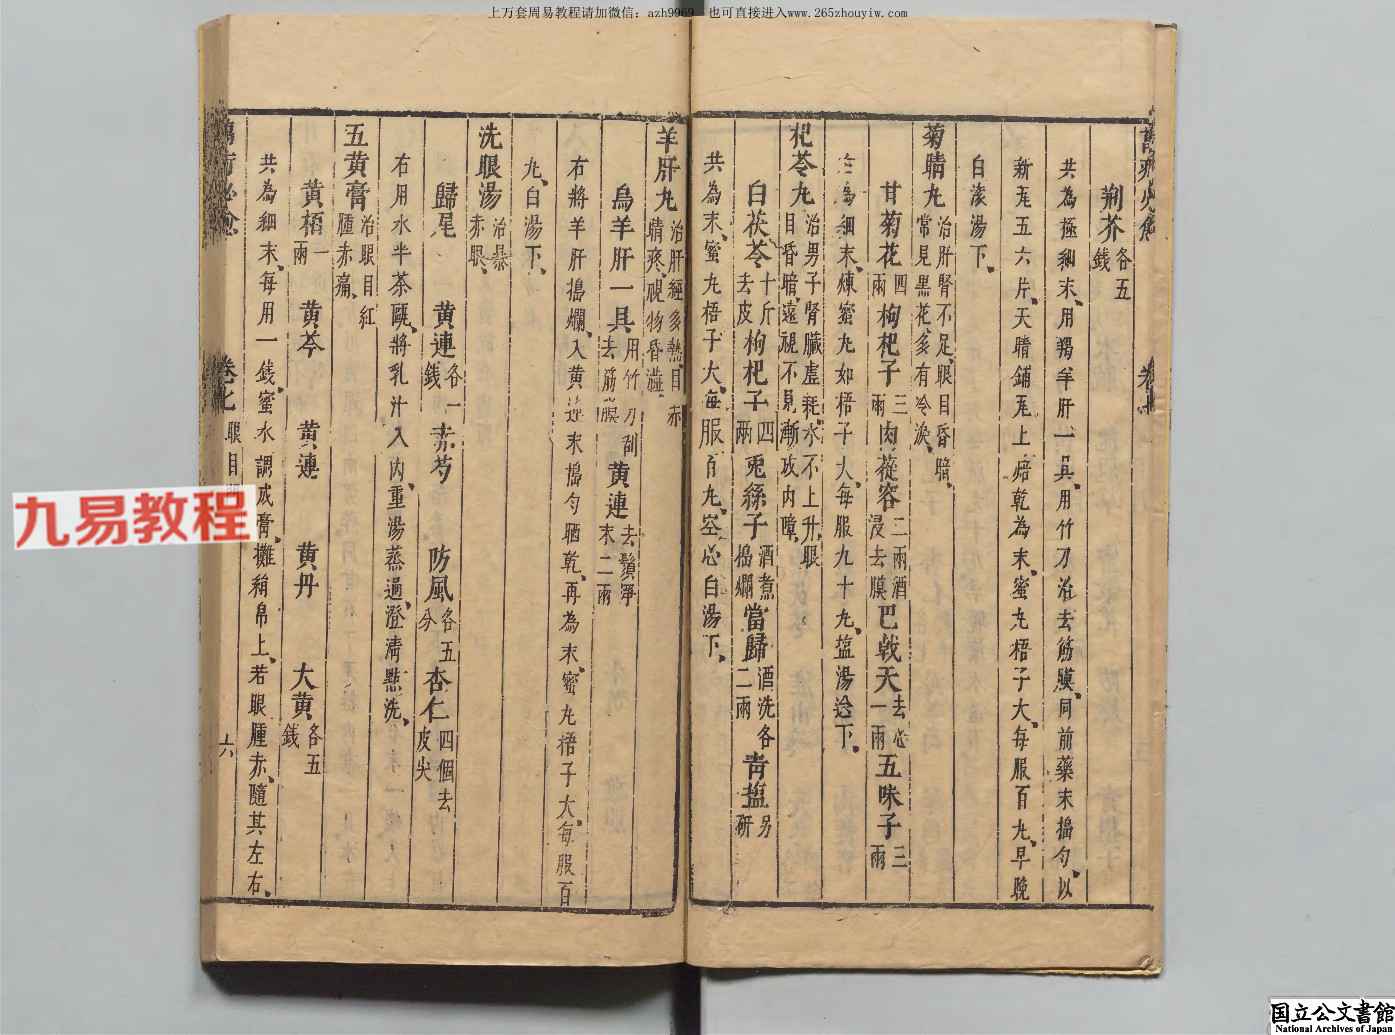 上万套周易教程请加微信：azh9969，也可直接进入www.265zhouyiw.com
荆芥各五錢
共為極細末、用羯羊肝一具、用竹刀治去筋膜、同前藥末搗勻、以
新瓦五六片、天晴鋪瓦上焙乾為末、蜜丸梧子大、每服百丸、早晚
白滚湯下、
菊睛丸治肝腎不足、眼目昏暗、常見黑花、多有冷淚、
甘菊花四兩枸杞子三兩肉蓯容二兩酒浸去膜巴戟天去心一兩五味子三兩
為細末、煉蜜丸如梧子大、每服九十丸、塩湯送下、
杞苓丸治男子腎臟虛耗、水不上升、眼目昏暗、遠視不見、漸成内障、
白茯苓十斤去皮枸杞子四兩兎絲子酒煮搗爛當歸酒洗各二兩青塩另研
共為末、蜜丸梧子大、每服百丸、空心白湯下、
羊肝丸治肝經多熱、目赤睛疼、視物昏澁、
烏羊肝一具用竹刀刮去筋膜黄連去鬚淨末二兩
右將羊肝搗爛、入黄連末搗勻晒乾、再為末、蜜丸梧子大、每服百
丸、白湯下、
洗眼湯治暴赤眼、
歸尾 黄連各一錢赤芍 防風各五分杏仁四個去皮尖
右用水半茶甌、將乳汁入内、重湯蒸過、澄清點洗、
五黄膏治眼目紅腫赤痛、
黄栢一兩 黄芩 黄連 黄丹 大黄各五錢
共為細末、每用一錢、蜜水調成膏、攤絹帛上、若眼腫赤、隨其左右、
卷七 眼目 六
九易教程
国立公文書館
National Archives of Japan